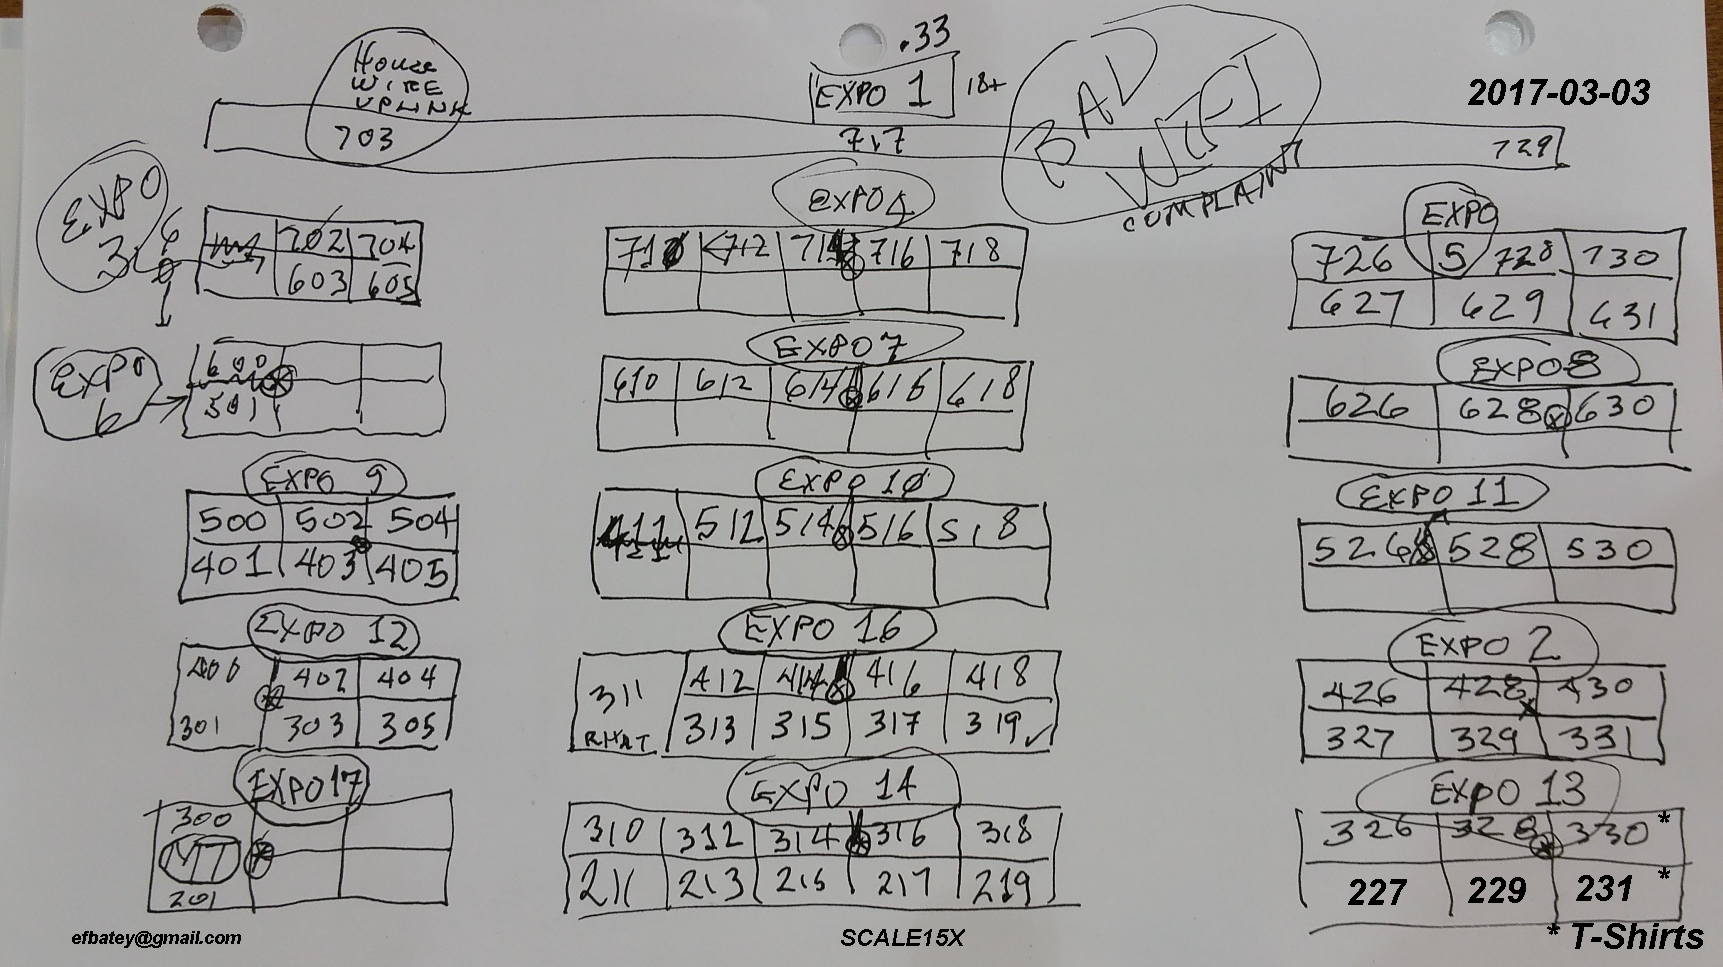 .33
House
WIRE
UPLINK
703
EXPO 1
18+
717
BAD
WIFI
COMPLAINT
2017-03-03
729
EXPO
3
702 704
603 605
EXPO 4
710 712 714 716 718
EXPO
5
726 728 730
627 629 631
EXPO
6
600
501
EXPO 7
610 612 614 616 618
EXPO 8
626 628 630
EXPO 9
500 502 504
401 403 405
EXPO 10
512 514 516 518
EXPO 11
526 528 530
EXPO 12
400 402 404
301 303 305
EXPO 16
412 414 416 418
311
RHAT
313 315 317 319
EXPO 2
426 428 430
327 329 331
EXPO 17
300
MT
201
EXPO 14
310 312 314 316 318
211 213 215 217 219
EXPO 13
326 328 330 *
227 229 231 *
efbatey@gmail.com
SCALE15X
* T-Shirts